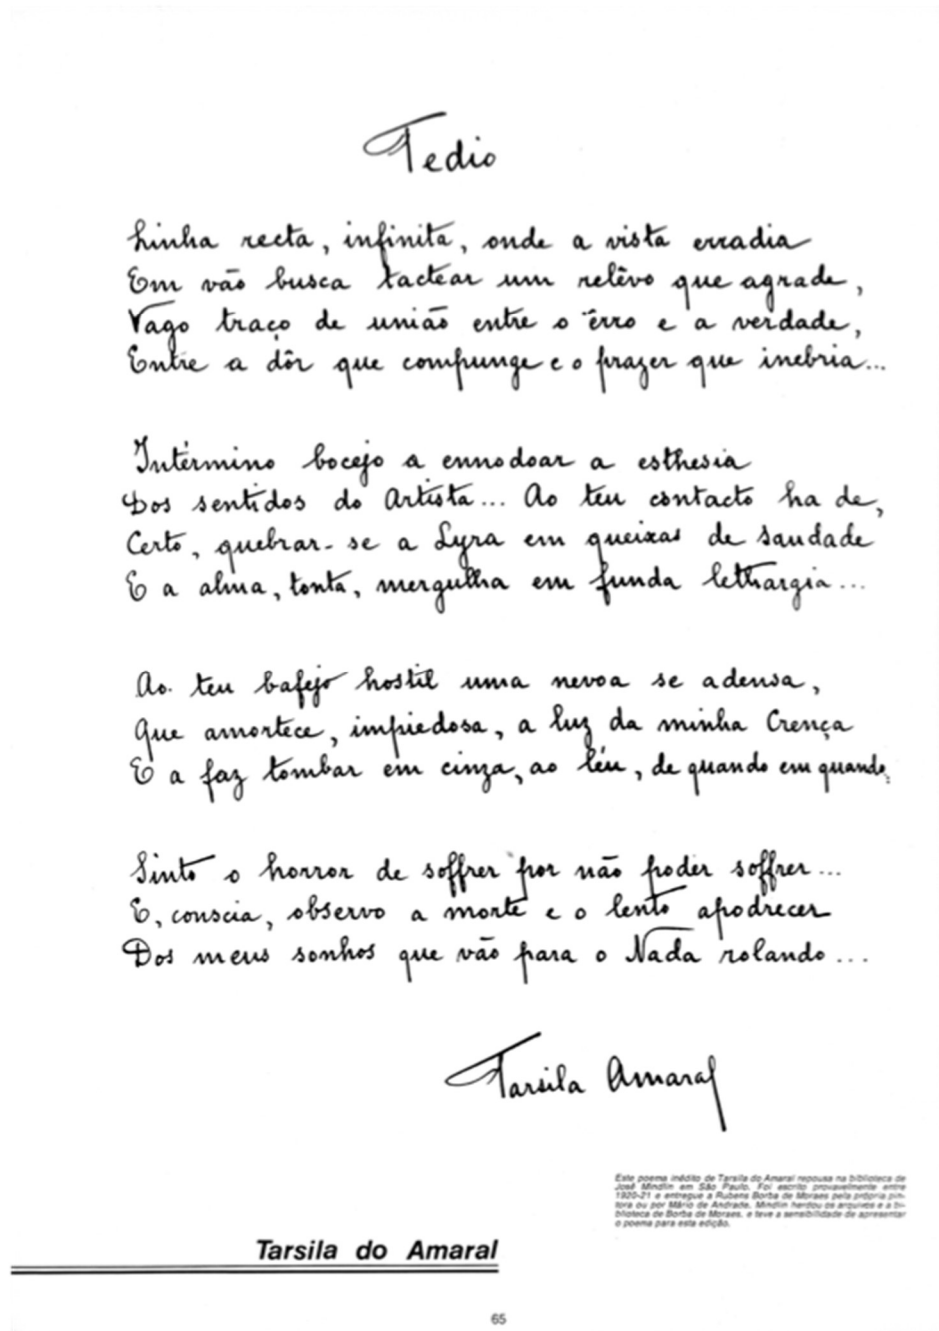 Tedio
Linha recta, infinita, onde a vista erradia
Em vão busca tactear um relêvo que agrade,
Vago traço de união entre o êrro e a verdade,
Entre a dôr que compunge e o prazer que inebria...
Intérmino bocejo a ennodoar a esthesia
Dos sentidos do Artista... Ao teu contacto ha de,
Certo, quebrar-se a Lyra em queixas de saudade
E a alma, tonta, mergulha em funda lethargia...
Ao teu bafejo hostil uma nevoa se adensa,
Que amortece, impiedosa, a luz da minha Crença
E a faz tombar em cinza, ao léu, de quando em quando.
Sinto o horror de soffrer por não poder soffrer...
E, conscia, observo a morte e o lento apodrecer
Dos meus sonhos que vão para o Nada rolando...
Tarsila Amaral
Este poema inédito de Tarsila do Amaral repousa na biblioteca de
José Mindlin em São Paulo. Foi escrito provavelmente entre
1920-21 e entregue a Rubens Borba de Moraes pela própria pin-
tora ou por Mário de Andrade. Mindlin herdou os arquivos e a bi-
blioteca de Borba de Moraes, e teve a sensibilidade de apresentar
o poema para esta edição.
Tarsila do Amaral
65